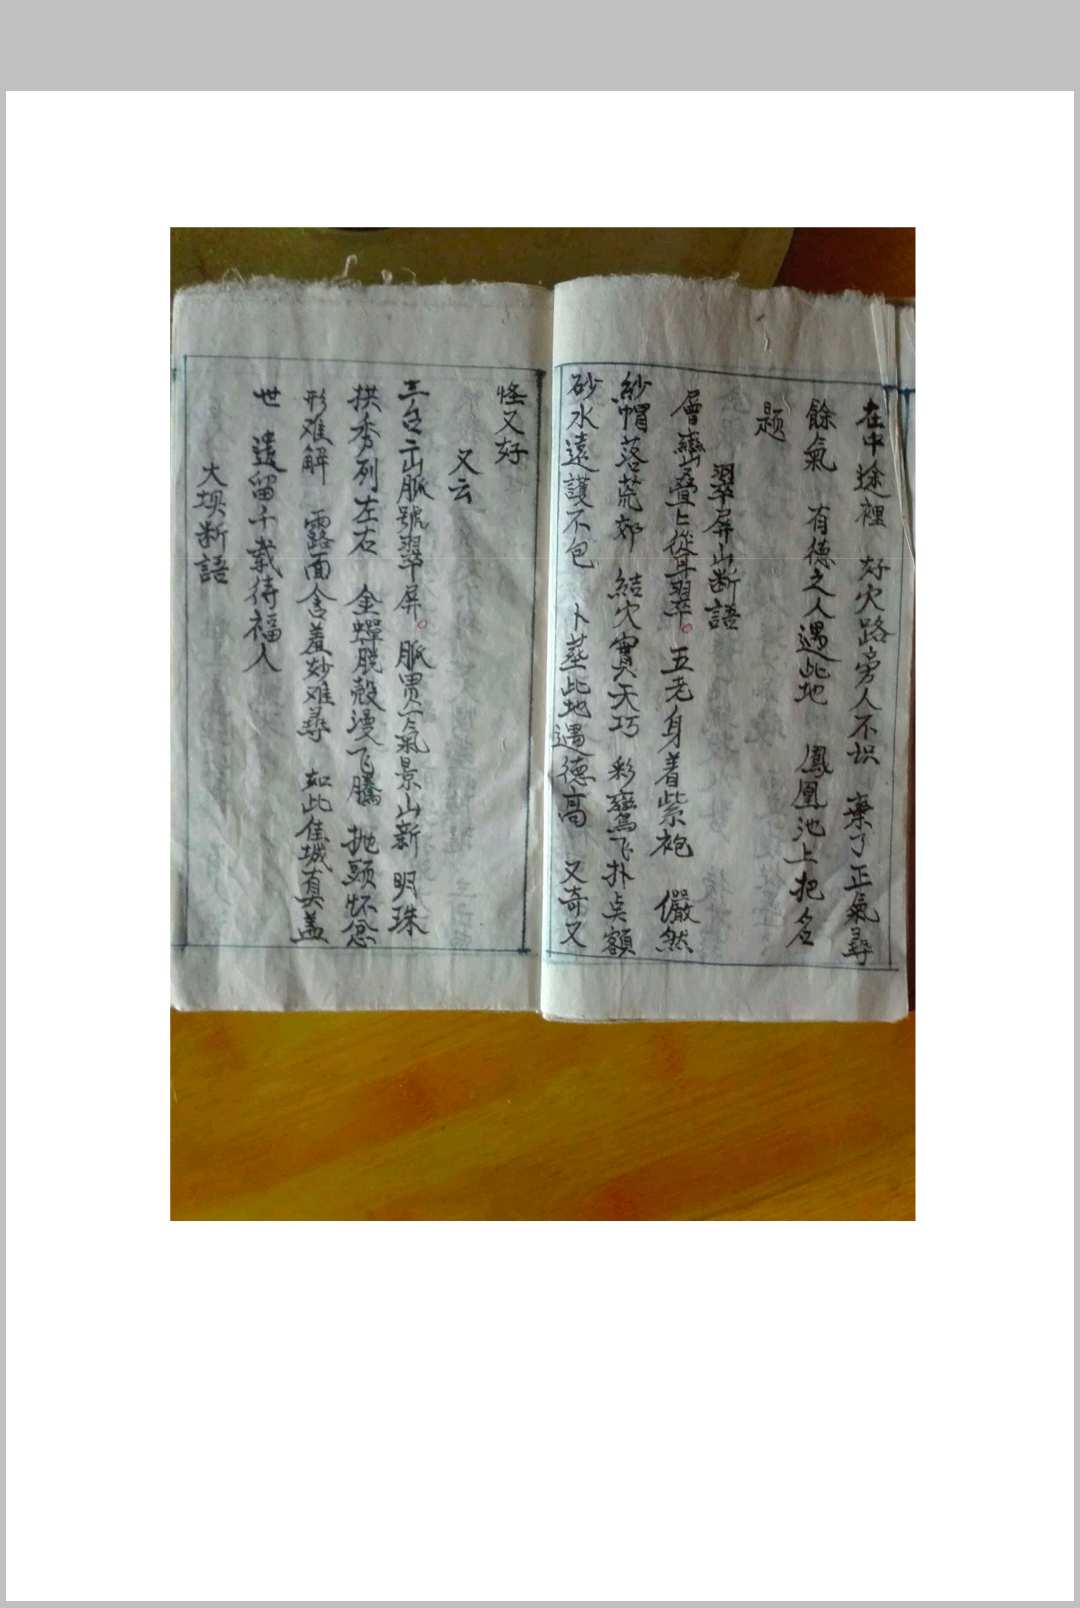 在中途裡　好穴路旁人不识　棄了正氣尋
餘氣　有德之人遇此地　鳳凰池上把名
题
翠屏山断語
層巒叠〻從耳翠。五老身着紫袍　儼然
紗帽落荒郊　結穴實天巧　彩鸞飞扑点額
砂水遠護不包　卜塟此地遇德高　又奇又
怪又好
又云
三台二山脈號翠屏。脈貫一氣景山新　明珠
拱秀列左右　金蟬脱殼漫飞騰　抛頭怀
形难解　露面含羞妙难尋　如此佳城真盖
世　遺留千载待福人
大坝断語